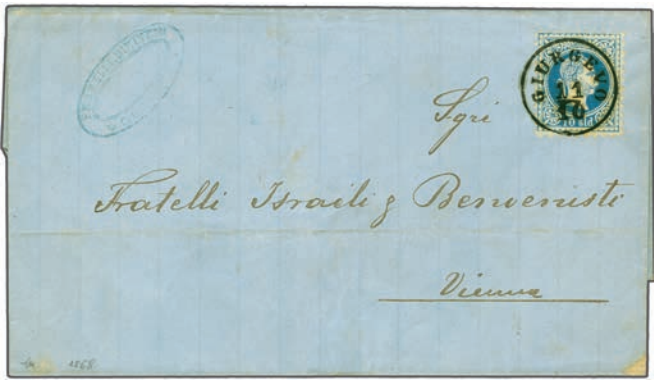 GIURGEVO
11
10
Sgri
Fratelli Israili & Benvenisti
Vienna
1868